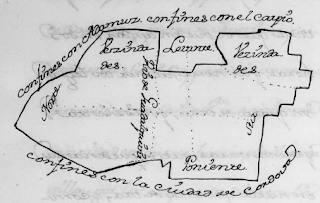 confines con Adamuz. confines con el carpio.
Vezinda
des.
Levante.
Vezinda
des.
Norte
Rio de Guadalquivir
Sur
Poniente.
confines con la Ciudad de Cordova